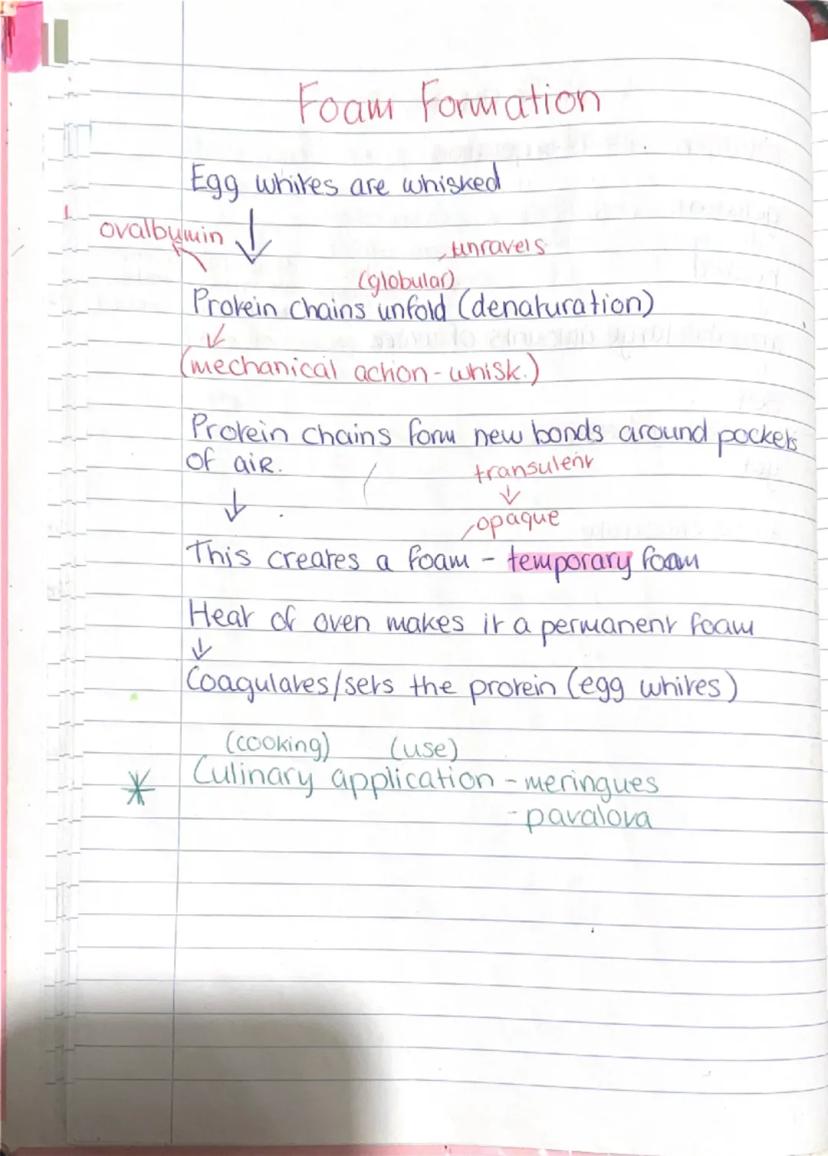 Foam Formation
Egg whites are whisked
ovalbumin
unravels
(globular)
Protein chains unfold (denaturation)
(mechanical action - whisk.)
Protein chains form new bonds around pockets
of air.
transulent
opaque
This creates a foam - temporary foam
Heat of oven makes it a permanent foam
Coagulates/sets the protein (egg whites)
(cooking) (use)
* Culinary application - meringues
- pavalova